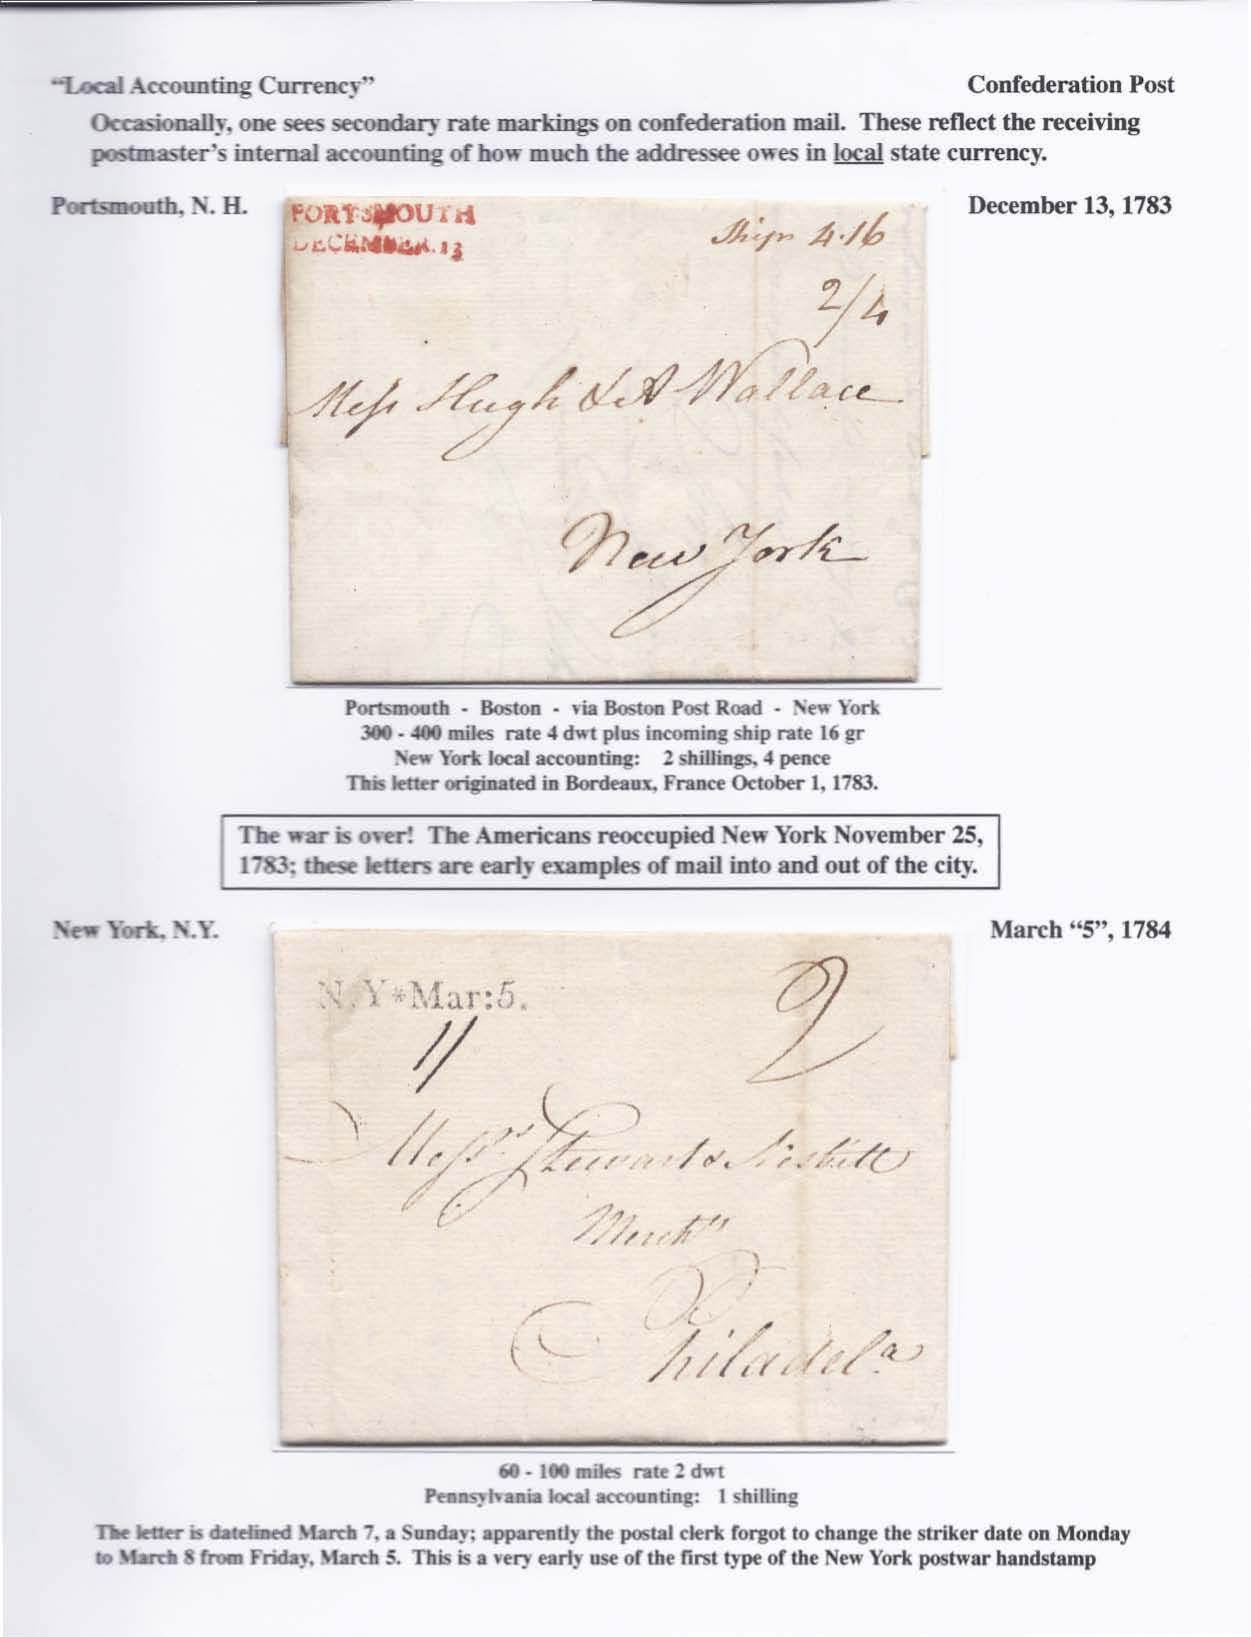 “Local Accounting Currency”
Confederation Post
Occasionally, one sees secondary rate markings on confederation mail. These reflect the receiving
postmaster’s internal accounting of how much the addressee owes in local state currency.
Portsmouth, N. H.
December 13, 1783
PORTSMOUTH
DECEMBER. 13
Ship 4.16
2/4
Mess Hugh & A Wallace
New York
Portsmouth - Boston - via Boston Post Road - New York
300 - 400 miles rate 4 dwt plus incoming ship rate 16 gr
New York local accounting: 2 shillings, 4 pence
This letter originated in Bordeaux, France October 1, 1783.
The war is over! The Americans reoccupied New York November 25,
1783; these letters are early examples of mail into and out of the city.
New York, N.Y.
March “5”, 1784
N.Y*Mar:5.
2
1/
Messrs Stewart & Nesbitt
Merchts
Philadela
60 - 100 miles rate 2 dwt
Pennsylvania local accounting: 1 shilling
The letter is datelined March 7, a Sunday; apparently the postal clerk forgot to change the striker date on Monday
to March 8 from Friday, March 5. This is a very early use of the first type of the New York postwar handstamp